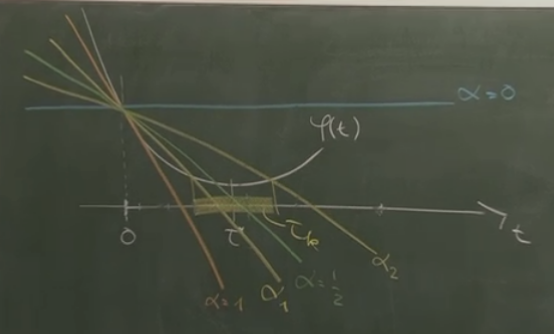 α=0
φ(t)
0
τ
τₖ
t
α=1
α₁
α=1/2
α₂